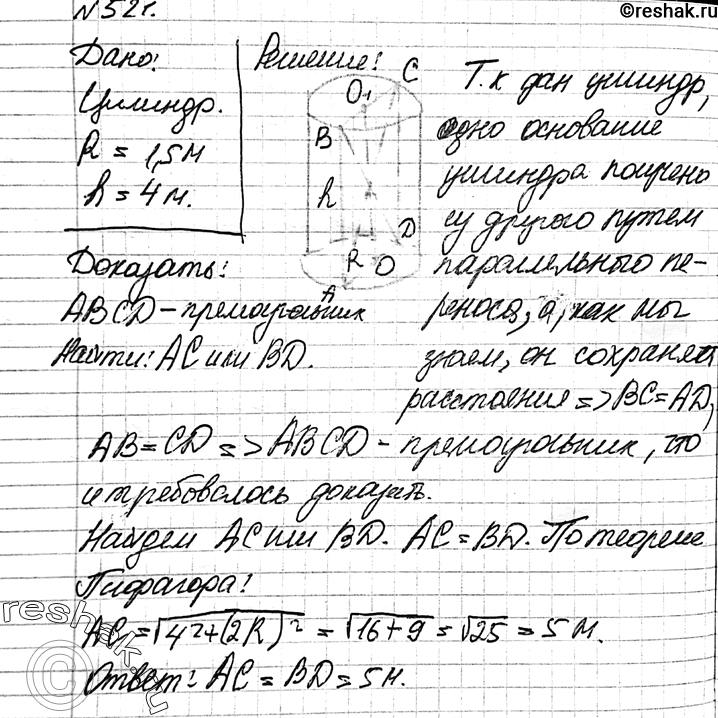 ©reshak.ru
№521.
Дано:
Цилиндр.
R = 1,5 м
h = 4 м.
Доказать:
ABCD - прямоугольник
Найти: AC или BD.
Решение:
C
O₁
B
h
D
R O
A
Т.к дан цилиндр,
одно основание
цилиндра получено
из другого путем
параллельного пе-
реноса, а, как мы
знаем, он сохраняет
расстояния => BC=AD,
AB=CD => ABCD - прямоугольник, что
и требовалось доказать.
Найдем AC или BD. AC=BD. По теореме
Пифагора:
AC = √4²+(2R)² = √16+9 = √25 = 5 м.
Ответ: AC = BD = 5 м.
reshak.ru
©